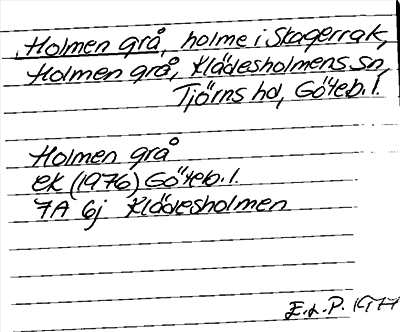 Holmen grå, holme i Skagerrak,
Holmen grå, Klädesholmens sn,
Tjörns hd, Göteb. l.
Holmen grå
ek (1976) Göteb. l.
7A 6j Klädesholmen
E. L. P. 1977